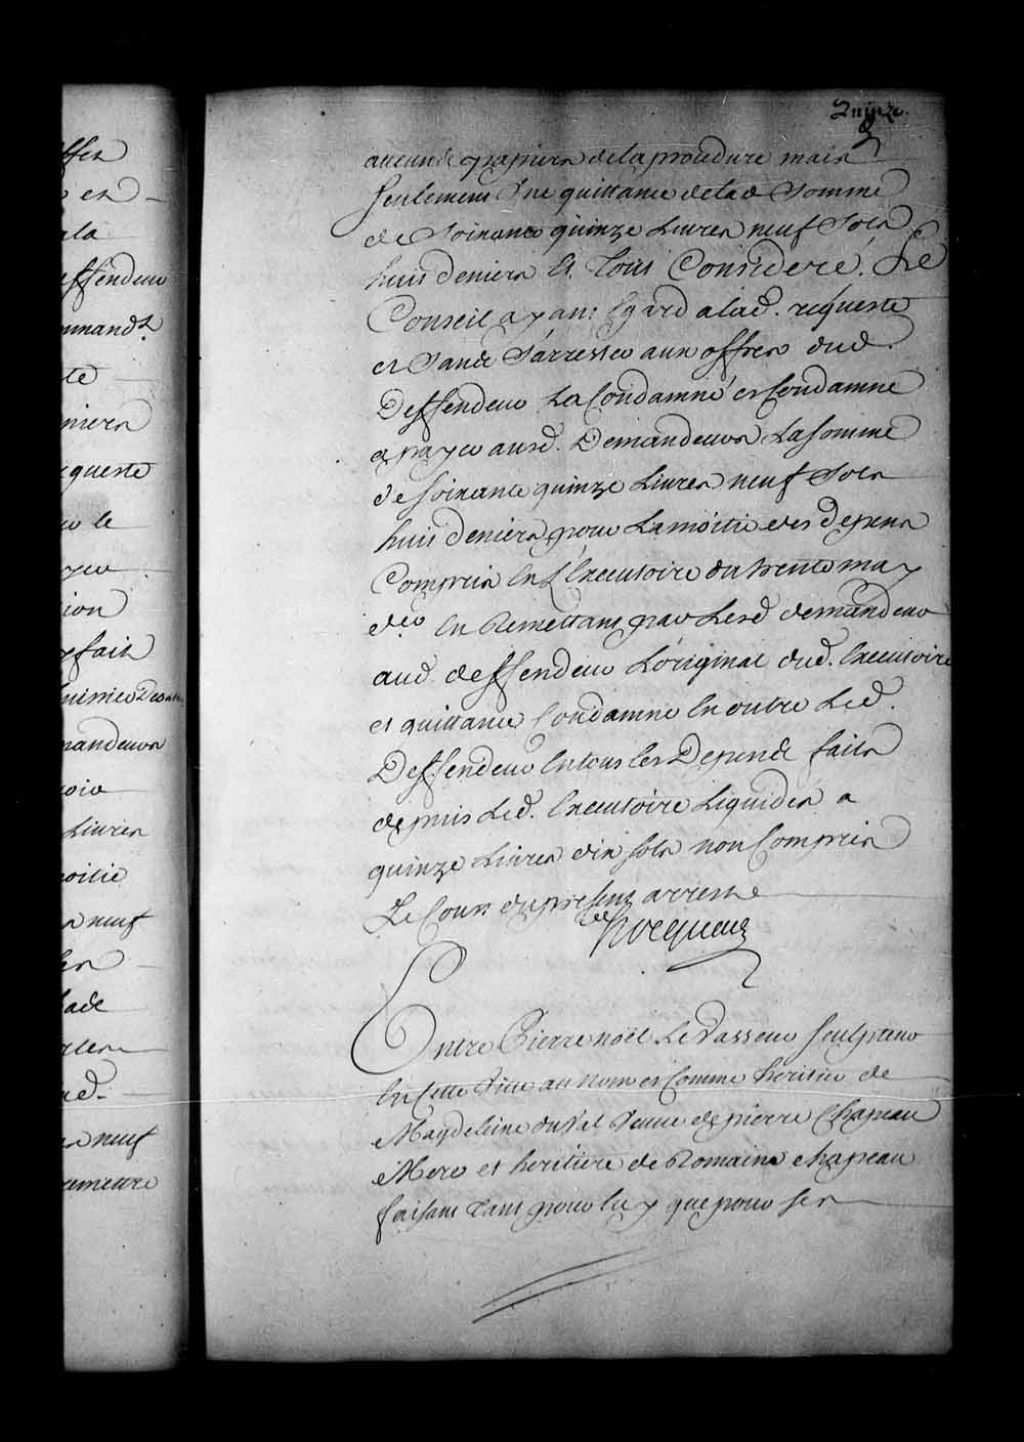 Quinze.
aucuns papiers de la procedure mais
seulement une quittance de lad Somme
de Soixante quinze Livres neuf Sols
huit deniers Et Tout Consideré. Le
Conseil ayant Egard a lad. requeste
et sans s'arrester aux offres dud.
Deffendeur La Condamné et Condamne
a payer ausd. Demandeurs La somme
de soixante quinze Livres neuf Sols
huit deniers pour La moitié des depens
Compris En L'Executoire du trente may
d.er En Remettant par Lesd demandeurs
aud. deffendeur L'original dud. Executoire
et quittance Condamne En outre Led.
Deffendeur En tous les Depends faits
depuis Led. Executoire Liquidés a
quinze Livres dix sols non Compris
Le Cout du present arreste
Hocquart
Entre Pierre noël Le Vasseur sculpteur
En Cette Ville au nom et Comme heritier de
Magdeleine du Vel Veuve de pierre Chapeau
Mere et heritiere de Romaine chapeau
faisant tant pour luy que pour ses
ffer
et
ala
effendeur
mmandt
te
niers
equeste
le
yer
ion
fait
mandeurs
Livres
oitié
neuf
ad.
neuf
remettre